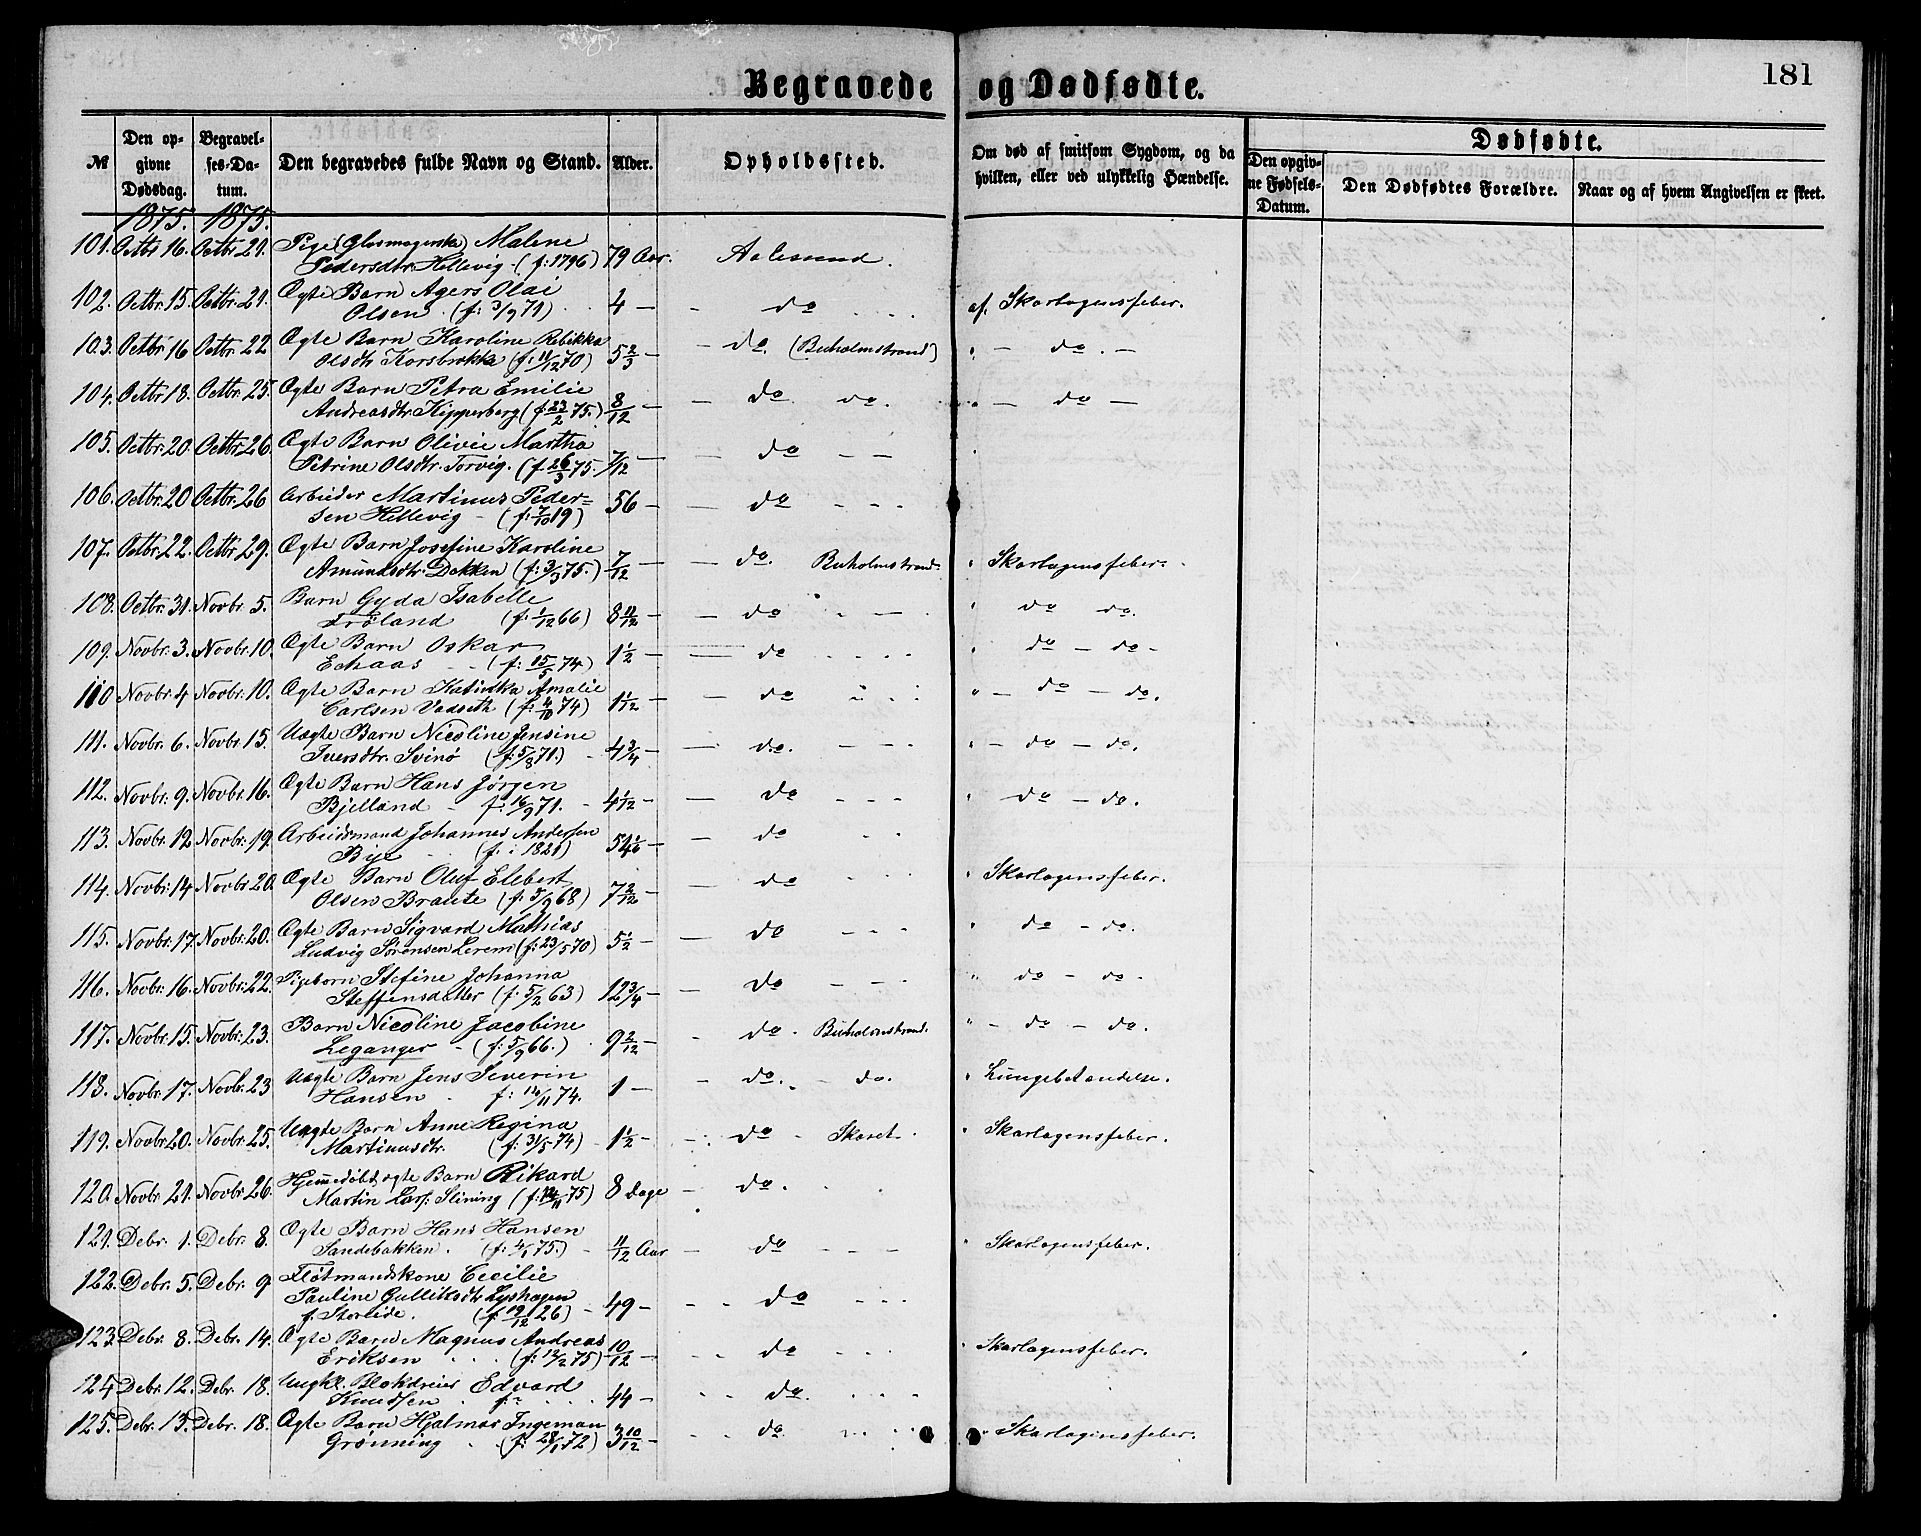 181
Begravede og Dødfødte.
№ Den opgivne Dødsdag. Begravelses-Datum. Den begravedes fulde Navn og Stand. Alder. Opholdssted. Om død af smitsom Sygdom, og da hvilken, eller ved ulykkelig Hændelse. Dødfødte.
Den opgivne Fødsels-Datum. Den Dødfødtes Forældre. Naar og af hvem Angivelsen er skeet.
1875. 1875.
101. Octbr 16. Octbr 21. Pige Malene
Pedersdtr. Hellevig. (f: 1796) 79 Aar. Aalesund.
102. Octbr. 15. Octbr. 21. Ægte Barn Agers Olai
Olsen. (f: 3/9 71) 4 — do af. Skarlagensfeber.
103. Octbr. 16 Octbr. 22 Ægte Barn Karoline Rebikka
Olsdtr Korsbrekke (f. 11/12 70) 5 2/3 — do. (Buholmstrand) " — do. —
104. Octbr 18. Octbr. 25. Ægte Barn Petra Emilie
Andreasdtr. Kipperberg (f. 23/2 75.) 8/12 — do. do. " — do —
105. Octbr. 20. Octbr. 26. Ægte Barn Olivie Martha
Petrine Olsdtr. Torvig. (f. 26/3 75. 7/12 — do — —
106. Octbr. 20 Octbr. 26 Arbeider Martinus Peder-
sen Hellevig — (f: 7/10 19) 56 — do - - -
107. Octbr. 22. Octbr. 29. Ægte Barn Josefine Karoline
Amundsdtr. Dokken (f: 3/3 75.) 7/12 — do. Buholmstrand. " Skarlagensfeber.
108. Octbr. 31. Novbr. 5. Barn Gyda Isabelle
Frøland (f: 1/12 66) 8 11/12 — do " do do.
109. Novbr. 3. Novbr. 10. Ægte Barn Oskar
Echaas (f: 15/5 74) 1 1/2 — do " do — do -
110 Novbr. 4 Novbr. 10. Ægte Barn Katinka Amalie
Carlsen Vadseth (f: 4/10 74) 1 1/12 — do " — do — do.
111. Novbr. 6. Novbr. 15. Uægte Barn Nicoline Jensine
Iversdtr. Svinø (f: 5/8 71.) 4 3/4 — do. - - - " — do — do.
112. Novbr. 9. Novbr. 16. Ægte Barn Hans Jørgen
Bjelland — f: 16/9 71. 4 1/12 — do - - - " do — do.
113. Novbr. 12 Novbr. 19. Arbeidsmand Johannes Andersen
Bye (f. i 1821) 54 1/6 — do
114. Novbr. 14 Novbr. 20. Ægte Barn Oluf Elebert
Olsen Braute (f: 5/9 68) 7 2/12 — do " Skarlagensfeber.
115. Novbr. 17. Novbr. 20. Ægte Barn Sigvard Mathias
Ludvig Sørensen Lerem (f: 23/5 70) 5 1/2 — do - - - " do - do.
116. Novbr. 16. Novbr. 22. Pigebarn Stefine Johanna
Steffensdatter (f: 5/2 63) 12 3/4 — do - - - " do - do.
117. Novbr. 15. Novbr. 23. Barn Nicoline Jacobine
Leganger — (f: 5/9 66.) 9 2/12 — do. Buholmstrand. " — do — do.
118. Novbr. 17. Novbr. 23 Uægte Barn Jens Severin
Hansen f: 14/11 74. 1 — do. - do. " Lungebetændelse.
119. Novbr. 20. Novbr. 25. Uægte Barn Anne Regina
Martinusdtr. (f: 31/5 74) 1 1/2 — do - Skaret. " Skarlagensfeber.
120. Novbr. 21. Novbr. 26. Hjemmedøbt ægte Barn Rikard
Martin Lars. Slining (f: 14/11 75) 8 Dage — do.
121. Debr. 1. Debr. 8. Ægte Barn Hans Hansen
Sandebakken. (f: 4/1 75.) 11/12 Aar — do - - - " Skarlagensfeber.
122. Debr. 5. Debr. 9 Fløtmandskone Cecilie
Pauline Gulliksdtr Lyshagen
f. Storeide. (f. 19/12 26) 49 — do - - -
123. Debr. 8. Debr. 14. Ægte Barn Magnus Andreas
Eriksen (f: 12/2 75) 10/12 — do - - - " Skarlagensfeber.
124 Debr. 12. Debr. 18. Ungk. Blokdreier Edvard
Knudsen f: 44 — do.
125. Debr. 13. Debr. 18. Ægte Barn Hjalmar Ingeman
Grønning (f: 28/1 72) 3 10/12 — do. " Skarlagensfeber.